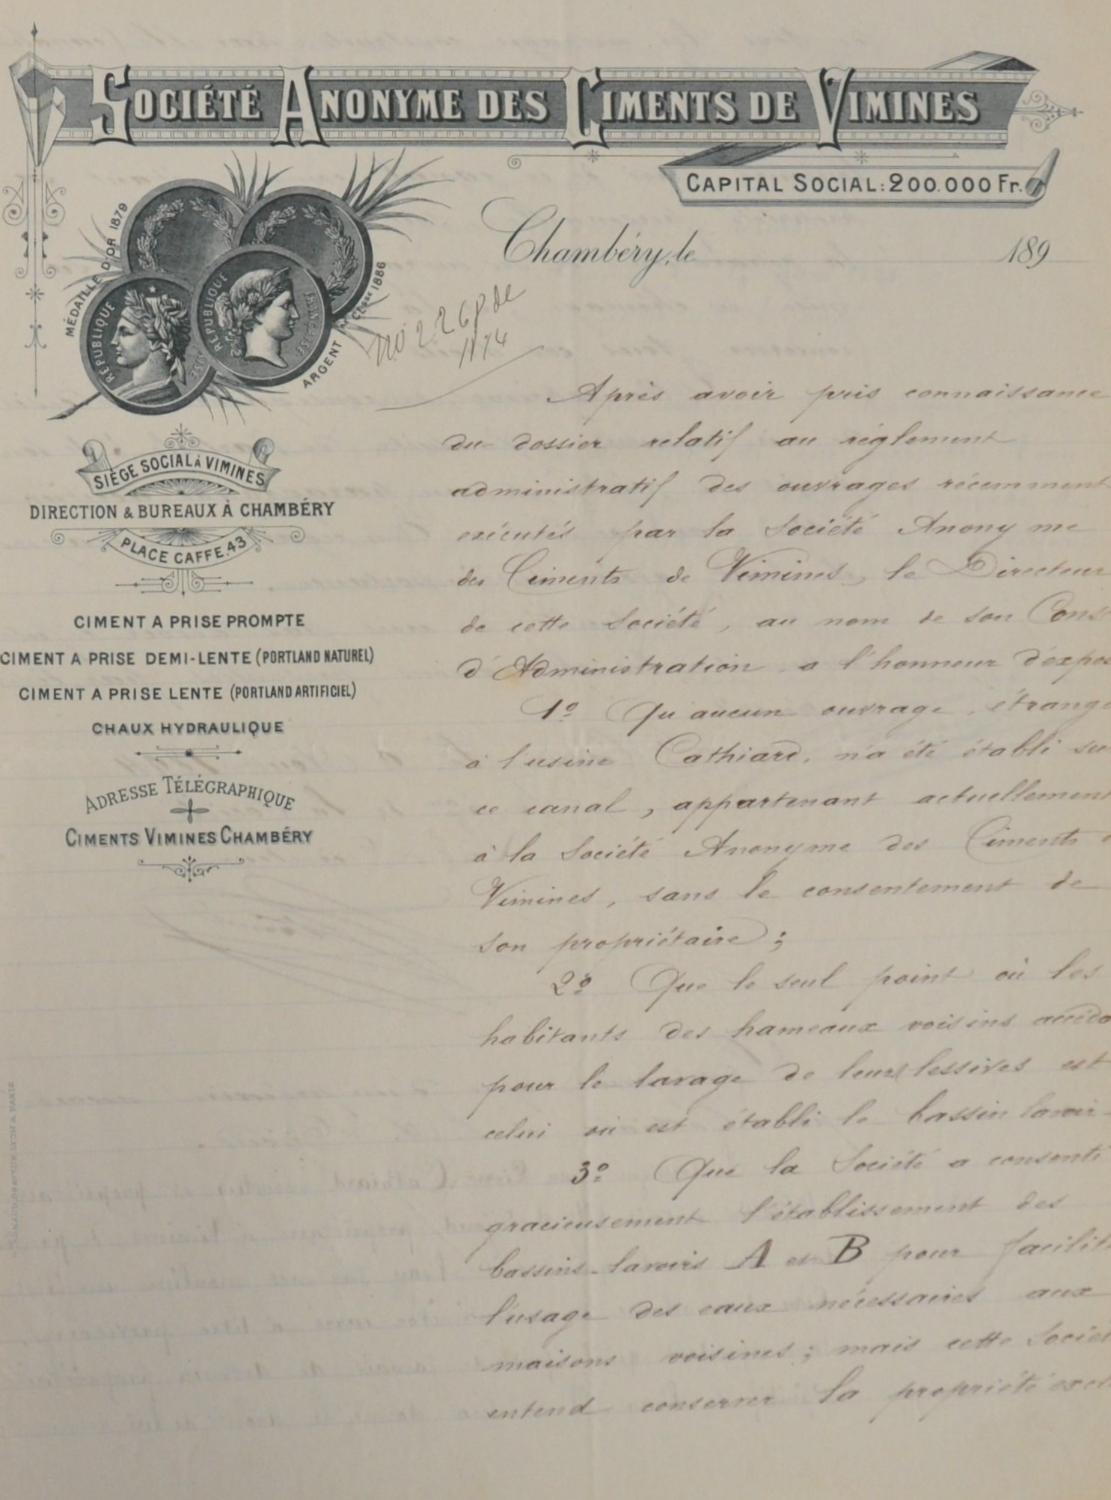 SOCIÉTÉ ANONYME DES CIMENTS DE VIMINES
CAPITAL SOCIAL: 200.000 Fr.
Chambéry, le 189
MÉDAILLE D'OR 1879
RÉPUBLIQUE
RÉPUBLIQUE FRANÇAISE
ARGENT 1886
No 2268 de
1874
SIÈGE SOCIAL À VIMINES
DIRECTION & BUREAUX À CHAMBÉRY
PLACE CAFFE.43
CIMENT A PRISE PROMPTE
CIMENT A PRISE DEMI-LENTE (PORTLAND NATUREL)
CIMENT A PRISE LENTE (PORTLAND ARTIFICIEL)
CHAUX HYDRAULIQUE
ADRESSE TÉLÉGRAPHIQUE
CIMENTS VIMINES CHAMBÉRY
Après avoir pris connaissance
du dossier relatif au règlement
administratif des ouvrages récemment
exécutés par la Société Anonyme
des Ciments de Vimines, le Directeur
de cette Société, au nom de son Cons
d'Administration a l'honneur d'expos
1º Qu'aucun ouvrage, étrange
à l'usine Cathiard, n'a été établi su
ce canal, appartenant actuellement
à la Société Anonyme des Ciments
Vimines, sans le consentement de
son propriétaire;
2º Que le seul point où les
habitants des hameaux voisins accèdo
pour le lavage de leurs lessives est
celui où est établi le bassin lavoir
3º Que la Société a consenti
gracieusement l'établissement des
bassins-lavoirs A et B pour facilit
l'usage des eaux nécessaires aux
maisons voisines; mais cette Sociét
entend conserver la propriété excl